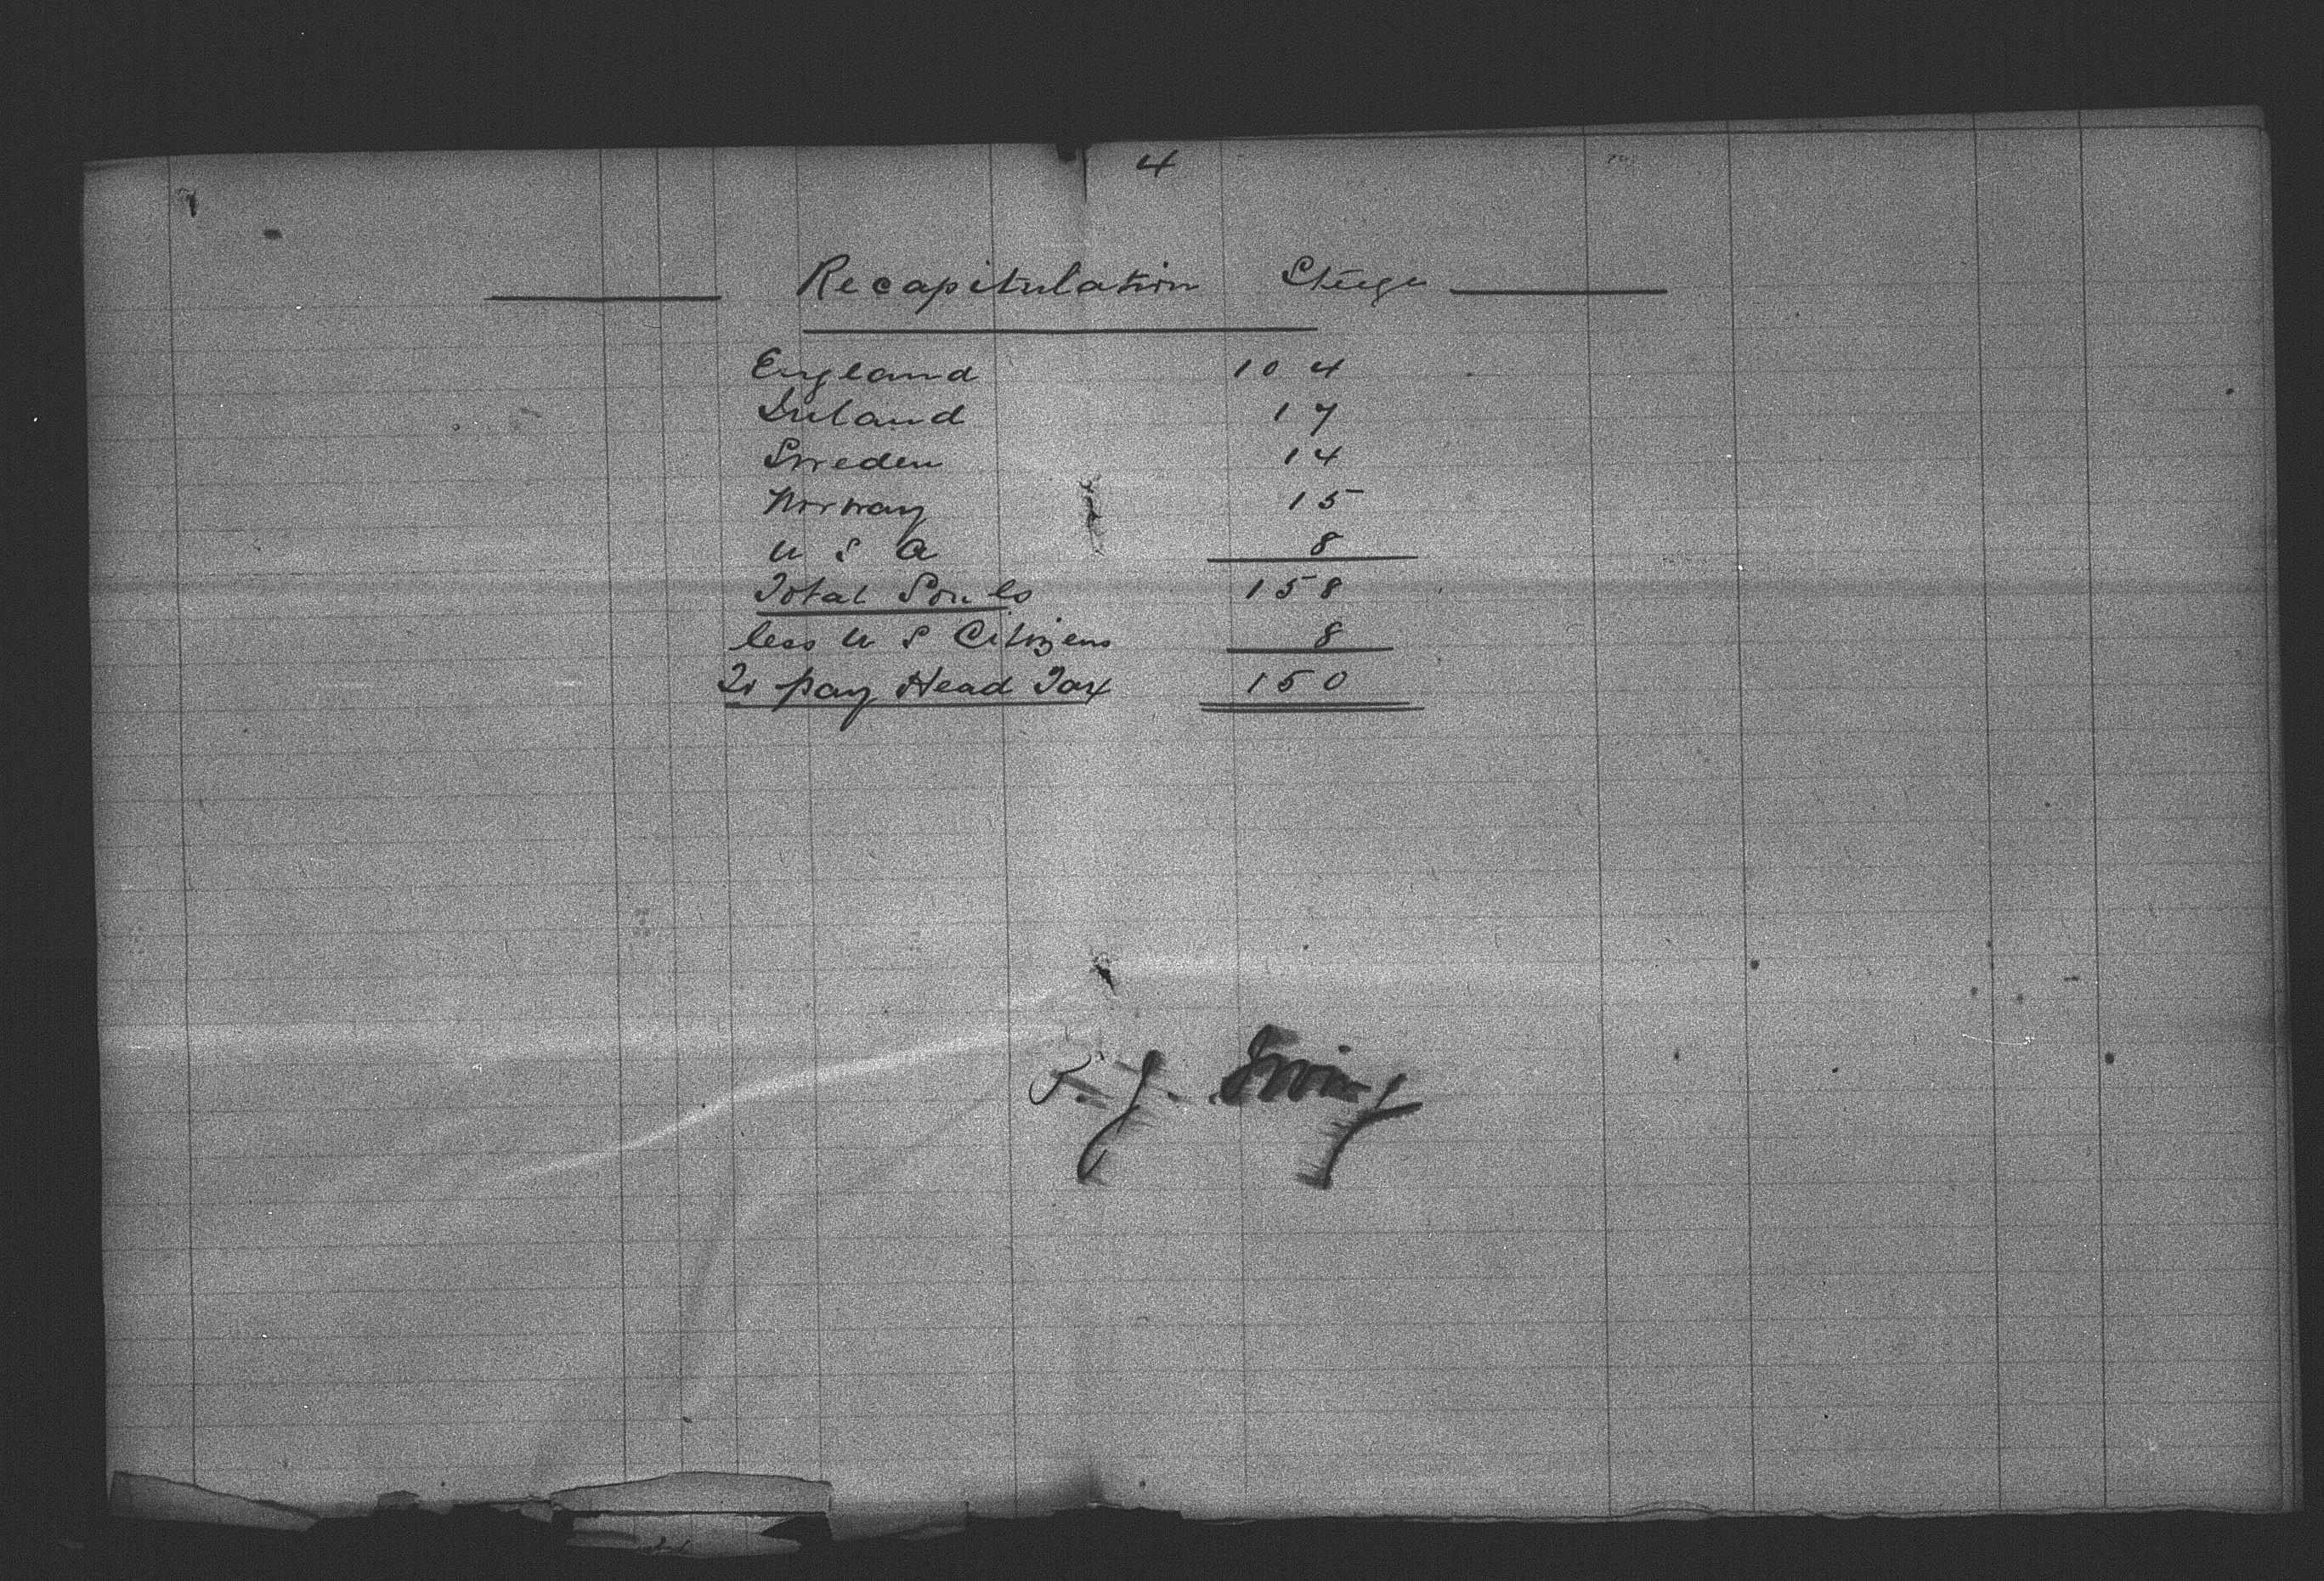 4
Recapitulation Steerage
England 104
Ireland 17
Sweden 14
Norway 15
U S A 8
Total Souls 158
less U S Citizens 8
To pay Head Tax 150
J. Irving